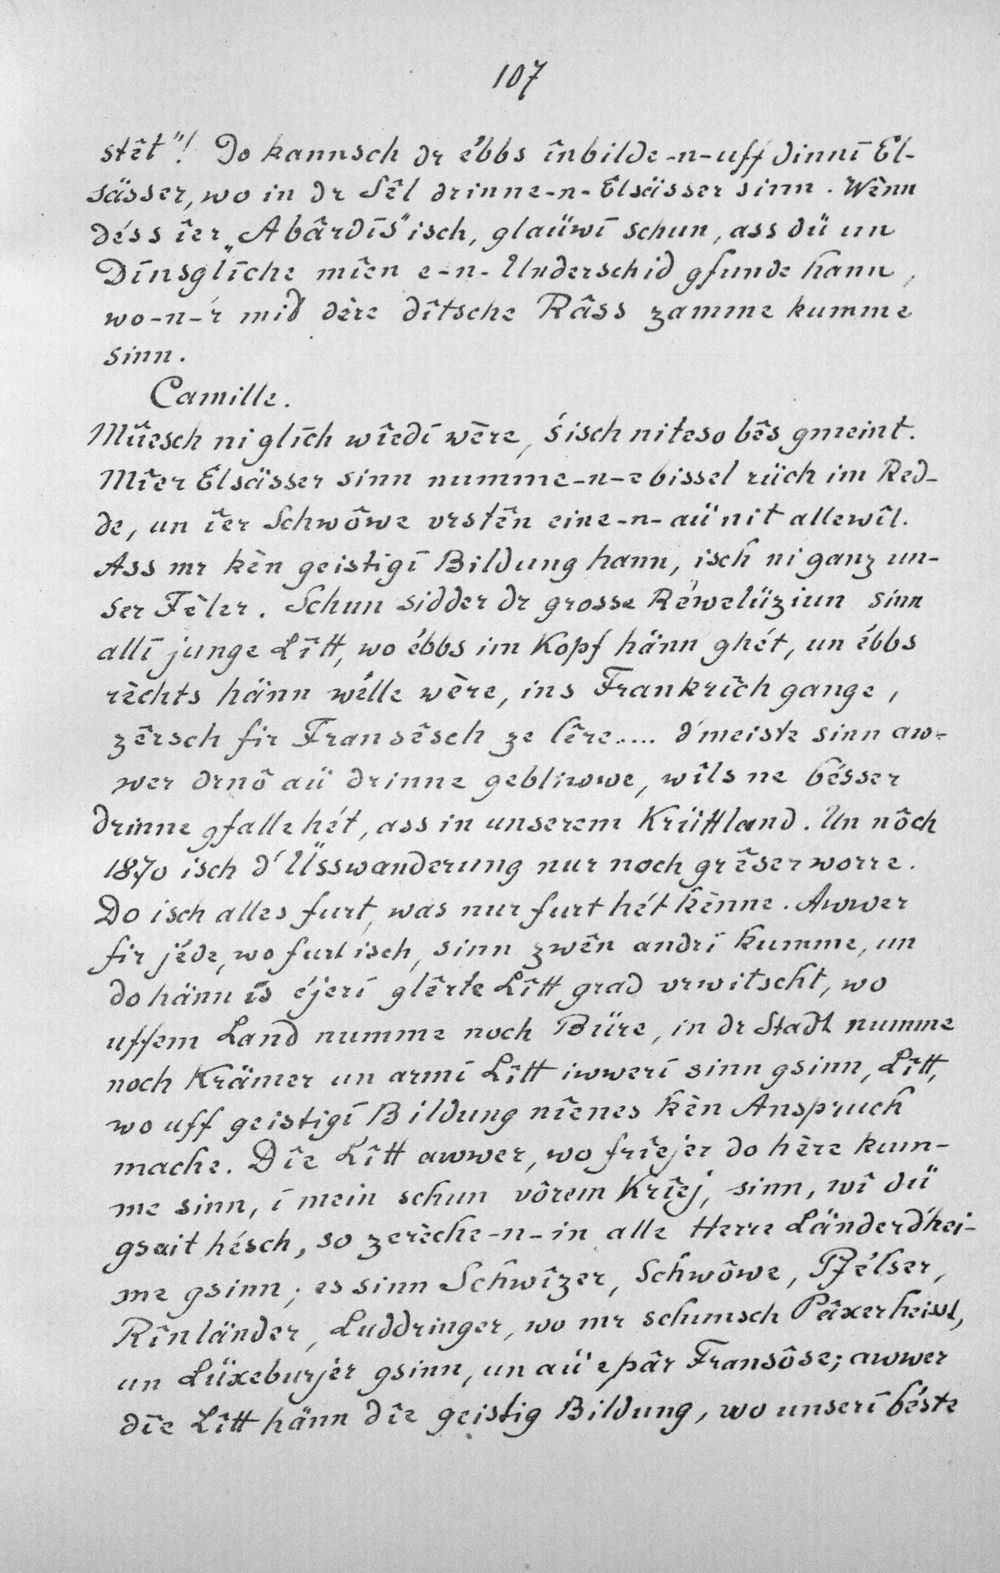 107
stêt"! Do kannsch dr ébbs înbilde-n-uff dinnī El-
sässer, wo in dr Sêl drinne-n-Elsässer sinn. Wènn
déss îer „Abârdīs" isch, glaüwī schun, ass dü un
Dīnsglīche mīen e-n-Underschid gfunde hann,
wo-n-'r mid dère dîtsche Râss zamme kumme
sinn.
Camille.
Mũesch ni glīch wîedī wère, 's isch nit eso bês gmeint.
Mîer Elsässer sinn numme-n-e bissel rüch im Red-
de, un îer Schwôwe vrstên eine-n-aü nit allewîl.
Ass mr kèn geistigī Bildung hann, isch ni ganz un-
ser Fèler. Schun sidder dr grosse Réwelüziun sinn
allī junge Lîtt, wo ébbs im Kopf hänn ghét, un ébbs
rèchts hänn wélle wère, ins Frankrîch gange,
zêrsch fir Fransêsch ze lêre.... d'meiste sinn aw-
wer drnô aü drinne gebliwwe, wîls ne bésser
drinne gfalle hét, ass in unserem Krüttland. Un nôch
1870 isch d'Üsswanderung nur noch grêser worre.
Do isch alles furt, was nur furt hét kènne. Awwer
fir jéde, wo furt isch, sinn zwên andrī kumme, un
do hänn īs éjerī glêrte Lîtt grad vrwitscht, wo
uffem Land numme noch Büre, in dr Stadt numme
noch Krämer un armī Lîtt iwwerī sinn gsinn, Lîtt,
wo uff geistigī Bildung nîenes kèn Anspruch
mache. Dîe Lîtt awwer, wo frîejer do hère kum-
me sinn, ī mein schun vôrem Krîej, sinn, wî dü
gsait hésch, so zerèche-n-in alle Herre Länder d'hei-
me gsinn; es sinn Schwîzer, Schwôwe, Pfélser,
Rînländer, Luddringer, wo mr schunsch Pâxer heisst,
un Lüxeburjer gsinn, un aü e pâr Fransôse; awwer
dîe Lîtt hänn dîe geistig Bildung, wo unserī béste